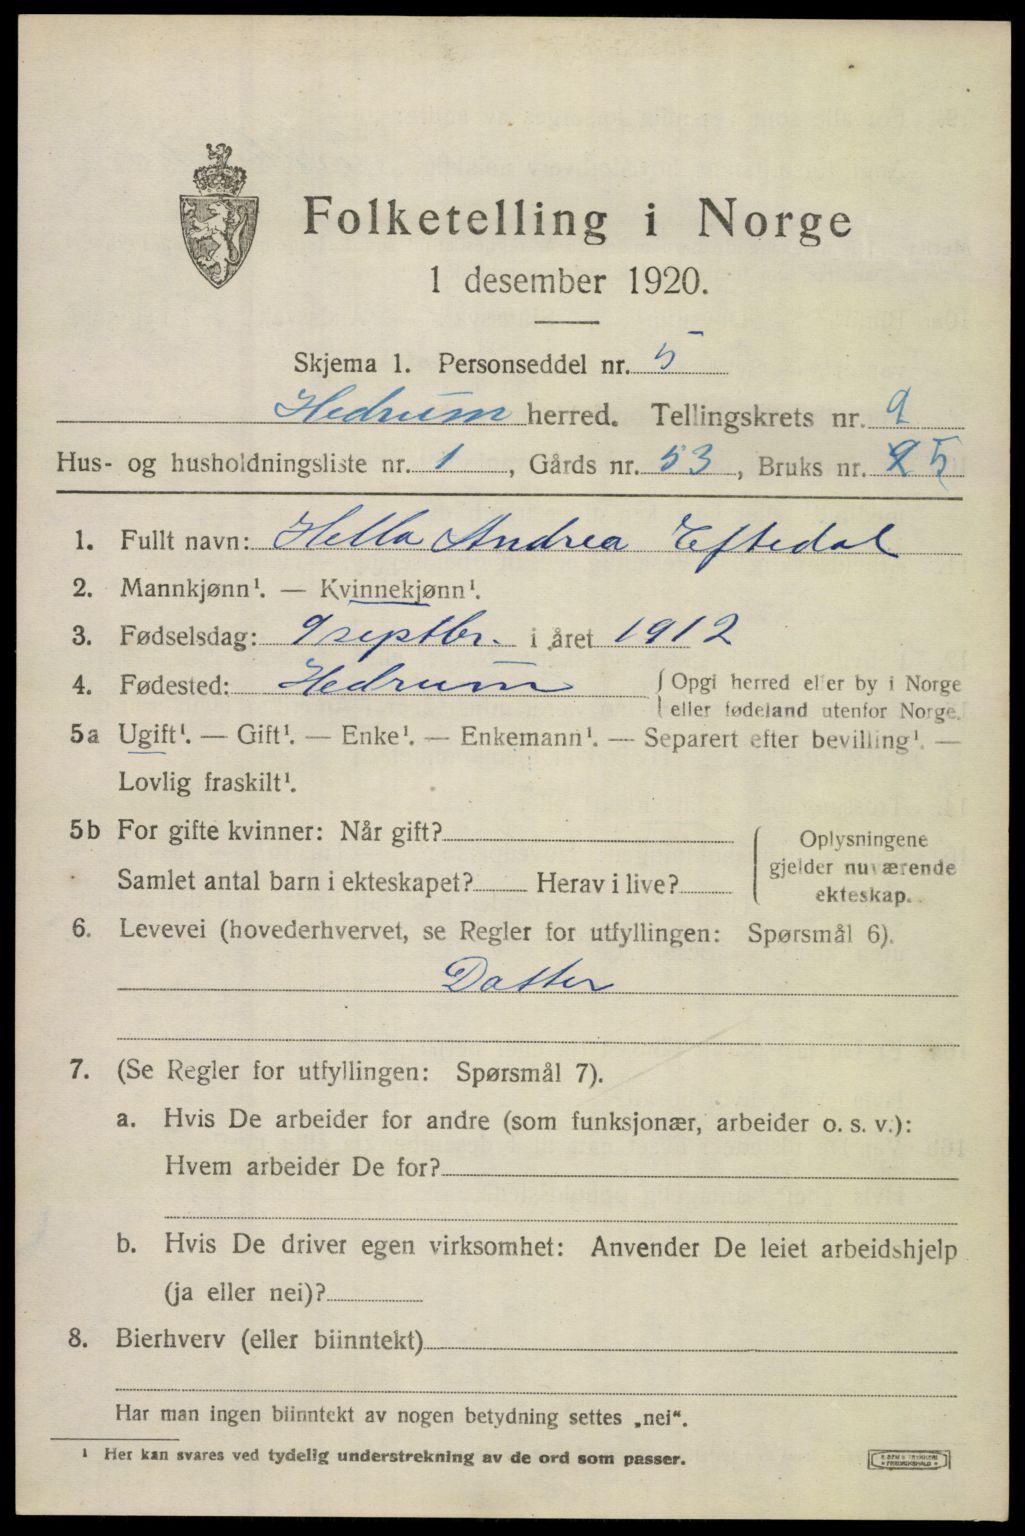 Folketelling i Norge
1 desember 1920.
Skjema 1. Personseddel nr. 5
Hedrum herred. Tellingskrets nr. 9
Hus- og husholdningsliste nr. 1, Gårds nr. 53, Bruks nr. 25
1. Fullt navn: Hella Andrea Eftedal
2. Mannkjønn¹. — Kvinnekjønn¹.
3. Fødselsdag: 9 septbr. i året 1912
4. Fødested: Hedrum { Opgi herred eller by i Norge
eller fødeland utenfor Norge.
5a Ugift¹. — Gift¹. — Enke¹. — Enkemann¹. — Separert efter bevilling¹. —
Lovlig fraskilt¹.
5b For gifte kvinner: Når gift?
Samlet antal barn i ekteskapet? Herav i live?
Oplysningene
gjelder nuværende
ekteskap.
6. Levevei (hovederhvervet, se Regler for utfyllingen: Spørsmål 6).
Datter
7. (Se Regler for utfyllingen: Spørsmål 7).
a. Hvis De arbeider for andre (som funksjonær, arbeider o. s. v.):
Hvem arbeider De for?
b. Hvis De driver egen virksomhet: Anvender De leiet arbeidshjelp
(ja eller nei)?
8. Bierhverv (eller biinntekt)
Har man ingen biinntekt av nogen betydning settes „nei“.
¹ Her kan svares ved tydelig understrekning av de ord som passer.